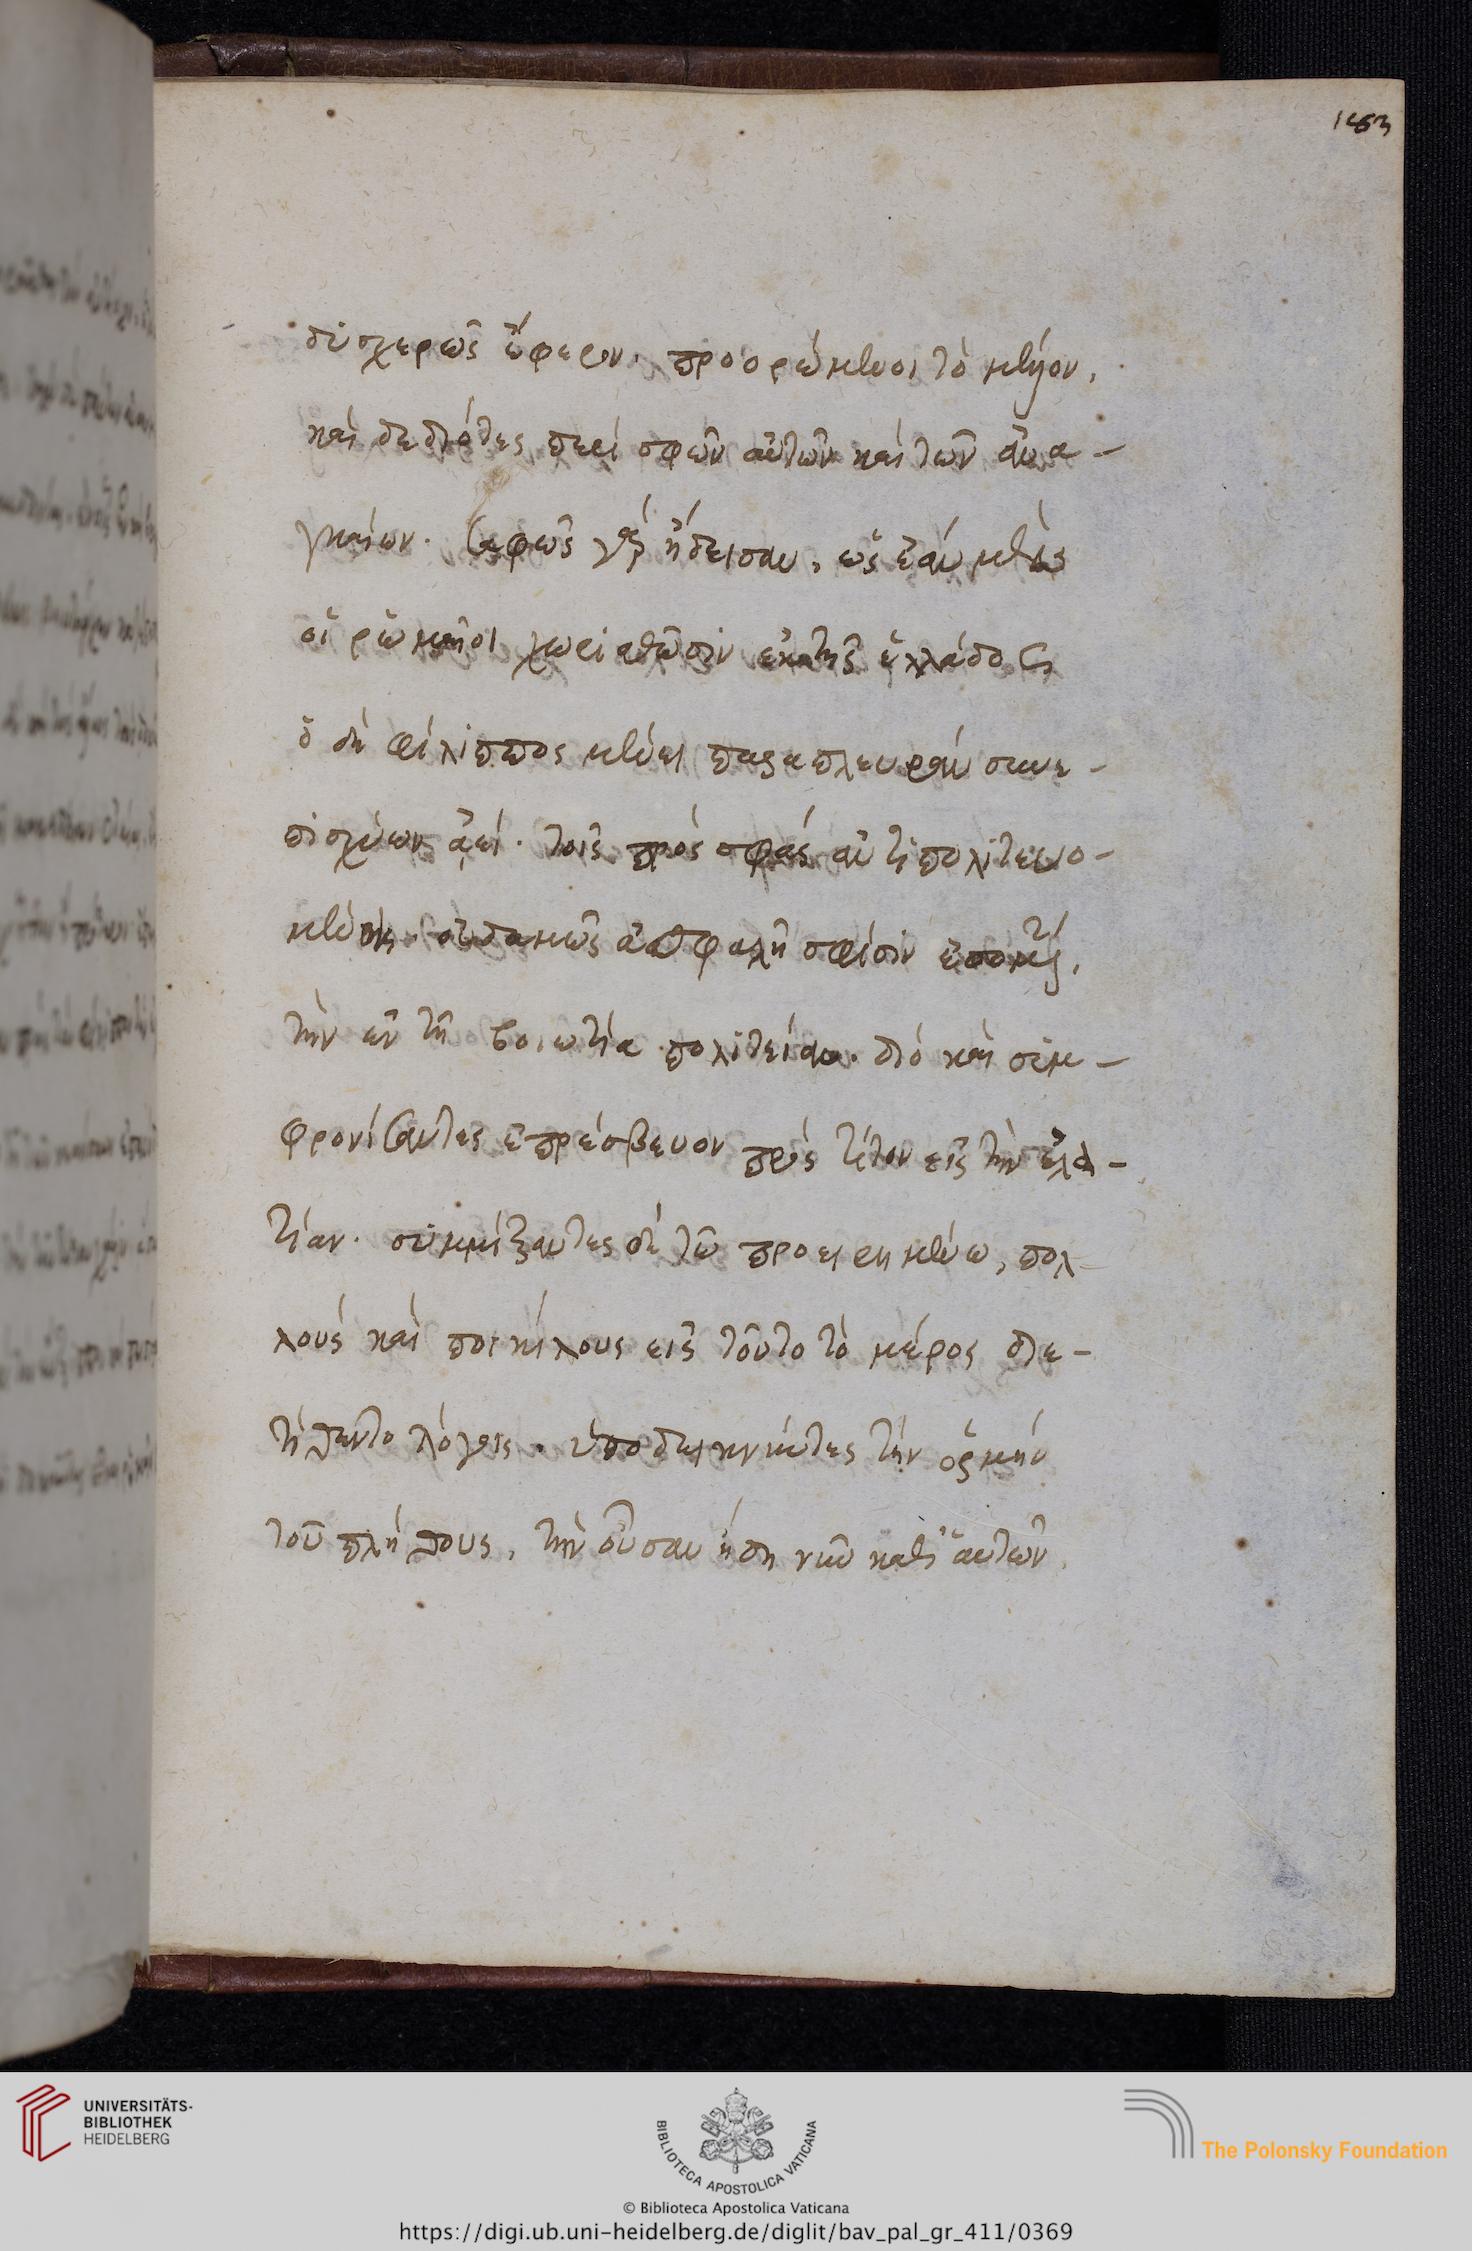 163
δυσχερῶς ἔφερον. προορώμενοι τὸ μέλλον,
καὶ δεδιότες περὶ σφῶν αὐτῶν καὶ τῶν ἀνα-
γκαίων. σαφῶς γὰρ ᾔδεισαν, ὡς ἐὰν μὲν
οἱ ῥωμαῖοι χωρισθῶσιν ἐκ τῆς ἑλλάδος
ὁ δὲ φίλιππος μένει παρὰ πλευρὰν συνε-
πισχύων ἀεί. τοῖς πρὸς σφᾶς ἀντιπολιτευο-
μένοις. οὐδαμῶς ἀσφαλῆ σφίσιν ἐσομένην,
τὴν ἐν τῇ βοιωτία πολιτείαν. διὸ καὶ συμ-
φρονήσαντες ἐπρέσβευον πρὸς τίτον εἰς τὴν ἐλα-
τίαν. συμμίξαντες δὲ τῶ προειρημένω, πολ-
λοὺς καὶ ποικίλους εἰς τοῦτο τὸ μέρος διε-
τίθεντο λόγους. ὑποδεικνύντες τὴν ὁρμὴν
τοῦ πλήθους, τὴν οὖσαν ἤδη νῦν καθ' αὑτῶν,
UNIVERSITÄTS-
BIBLIOTHEK
HEIDELBERG
BIBLIOTECA APOSTOLICA VATICANA
The Polonsky Foundation
© Biblioteca Apostolica Vaticana
https://digi.ub.uni-heidelberg.de/diglit/bav_pal_gr_411/0369